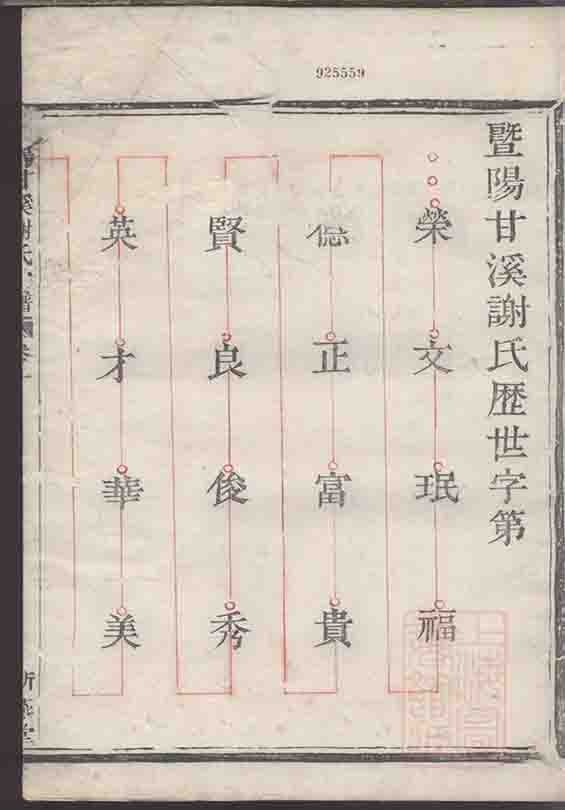 925559
暨陽甘溪謝氏歷世字第
榮文珉福
德正富貴
賢良俊秀
英才華美
甘溪謝氏宗譜